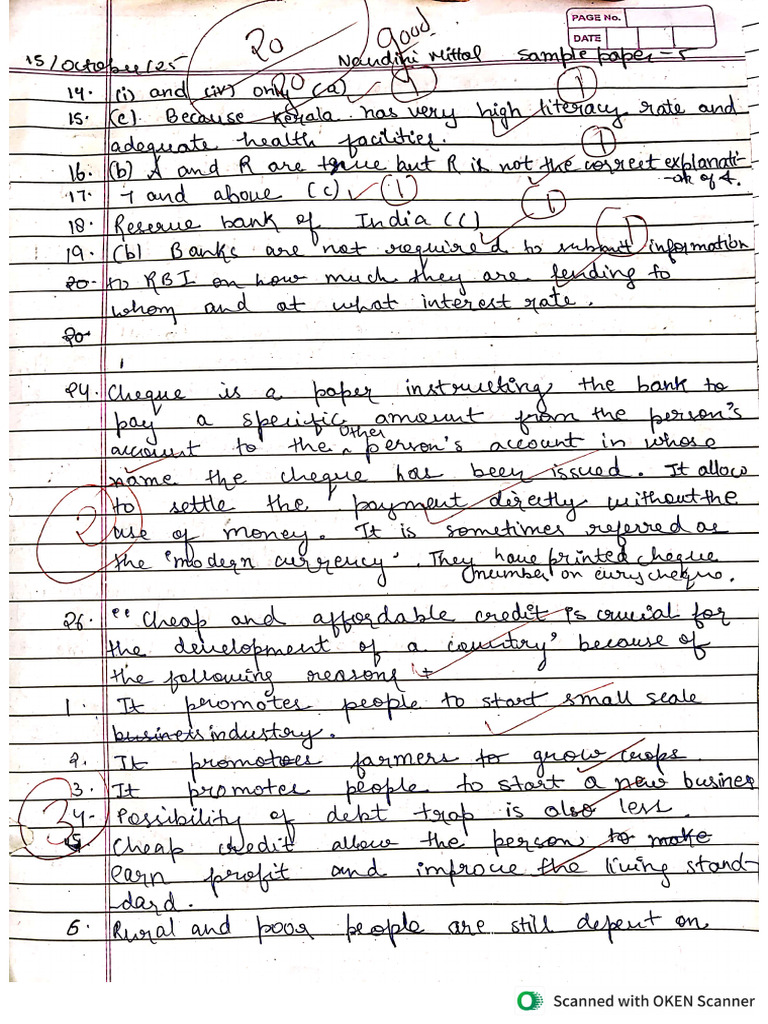 PAGE No.
DATE
good
20
20
15/October/25 Nandini Mittal Sample paper-5
14. (i) and (iv) only (a) 1 1
15. (c) Because Kerala has very high literacy rate and
adequate health facilities. 1
16. (b) A and R are true but R is not the correct explanati-
-on of A.
17. 7 and above (c) 1
18. Reserve bank of India (c) 1 1
19. (b) Banks are not required to submit information
20. to RBI on how much they are lending to
whom and at what interest rate.
20.
24. Cheque is a paper instructing the bank to
pay a specific amount from the person's
account to the other person's account in whose
name the cheque has been issued. It allow
to settle the payment directly without the
2 use of money. It is sometimes referred as
the "modern currency". They have printed cheque
number on every cheque.
26. "Cheap and affordable credit is crucial for
the development of a country' because of
the following reasons :-
1. It promotes people to start small scale
business industry.
2. It promotes farmers to grow crops.
3. It promotes people to start a new busines
3 4. Possibility of debt trap is also less.
5. Cheap credit allow the person to make
earn profit and improve the living stand-
-dard.
6. Rural and poor people are still depent on
Scanned with OKEN Scanner